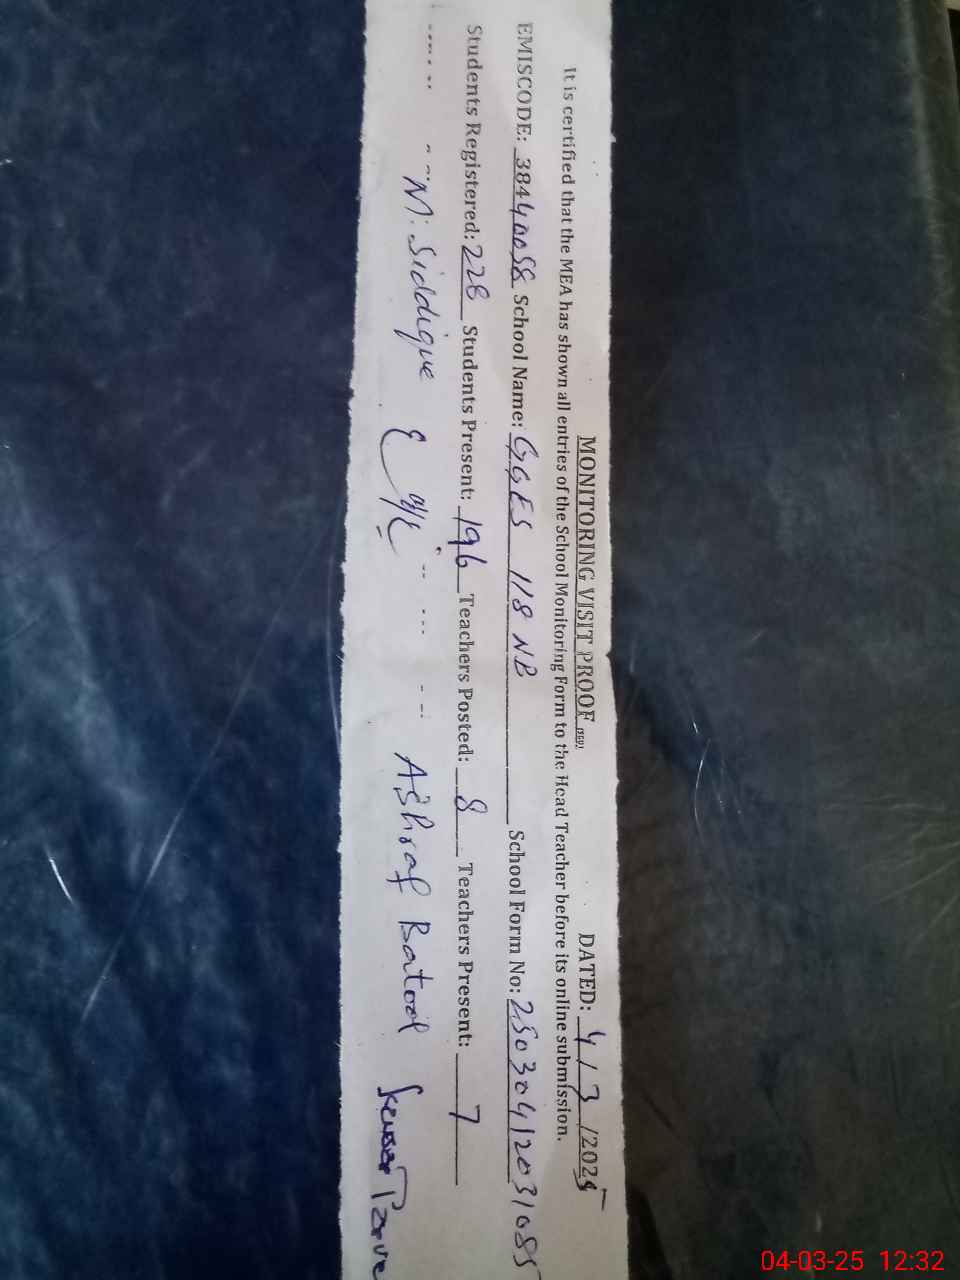 MONITORING VISIT PROOF (SED) DATED: 4/3/2025
It is certified that the MEA has shown all entries of the School Monitoring Form to the Head Teacher before its online submission.
EMISCODE: 38440058 School Name: GGES 118 NB School Form No: 25030412031085
Students Registered: 228 Students Present: 196 Teachers Posted: 8 Teachers Present: 7
M. Siddique Ashraf Batool
04-03-25 12:32